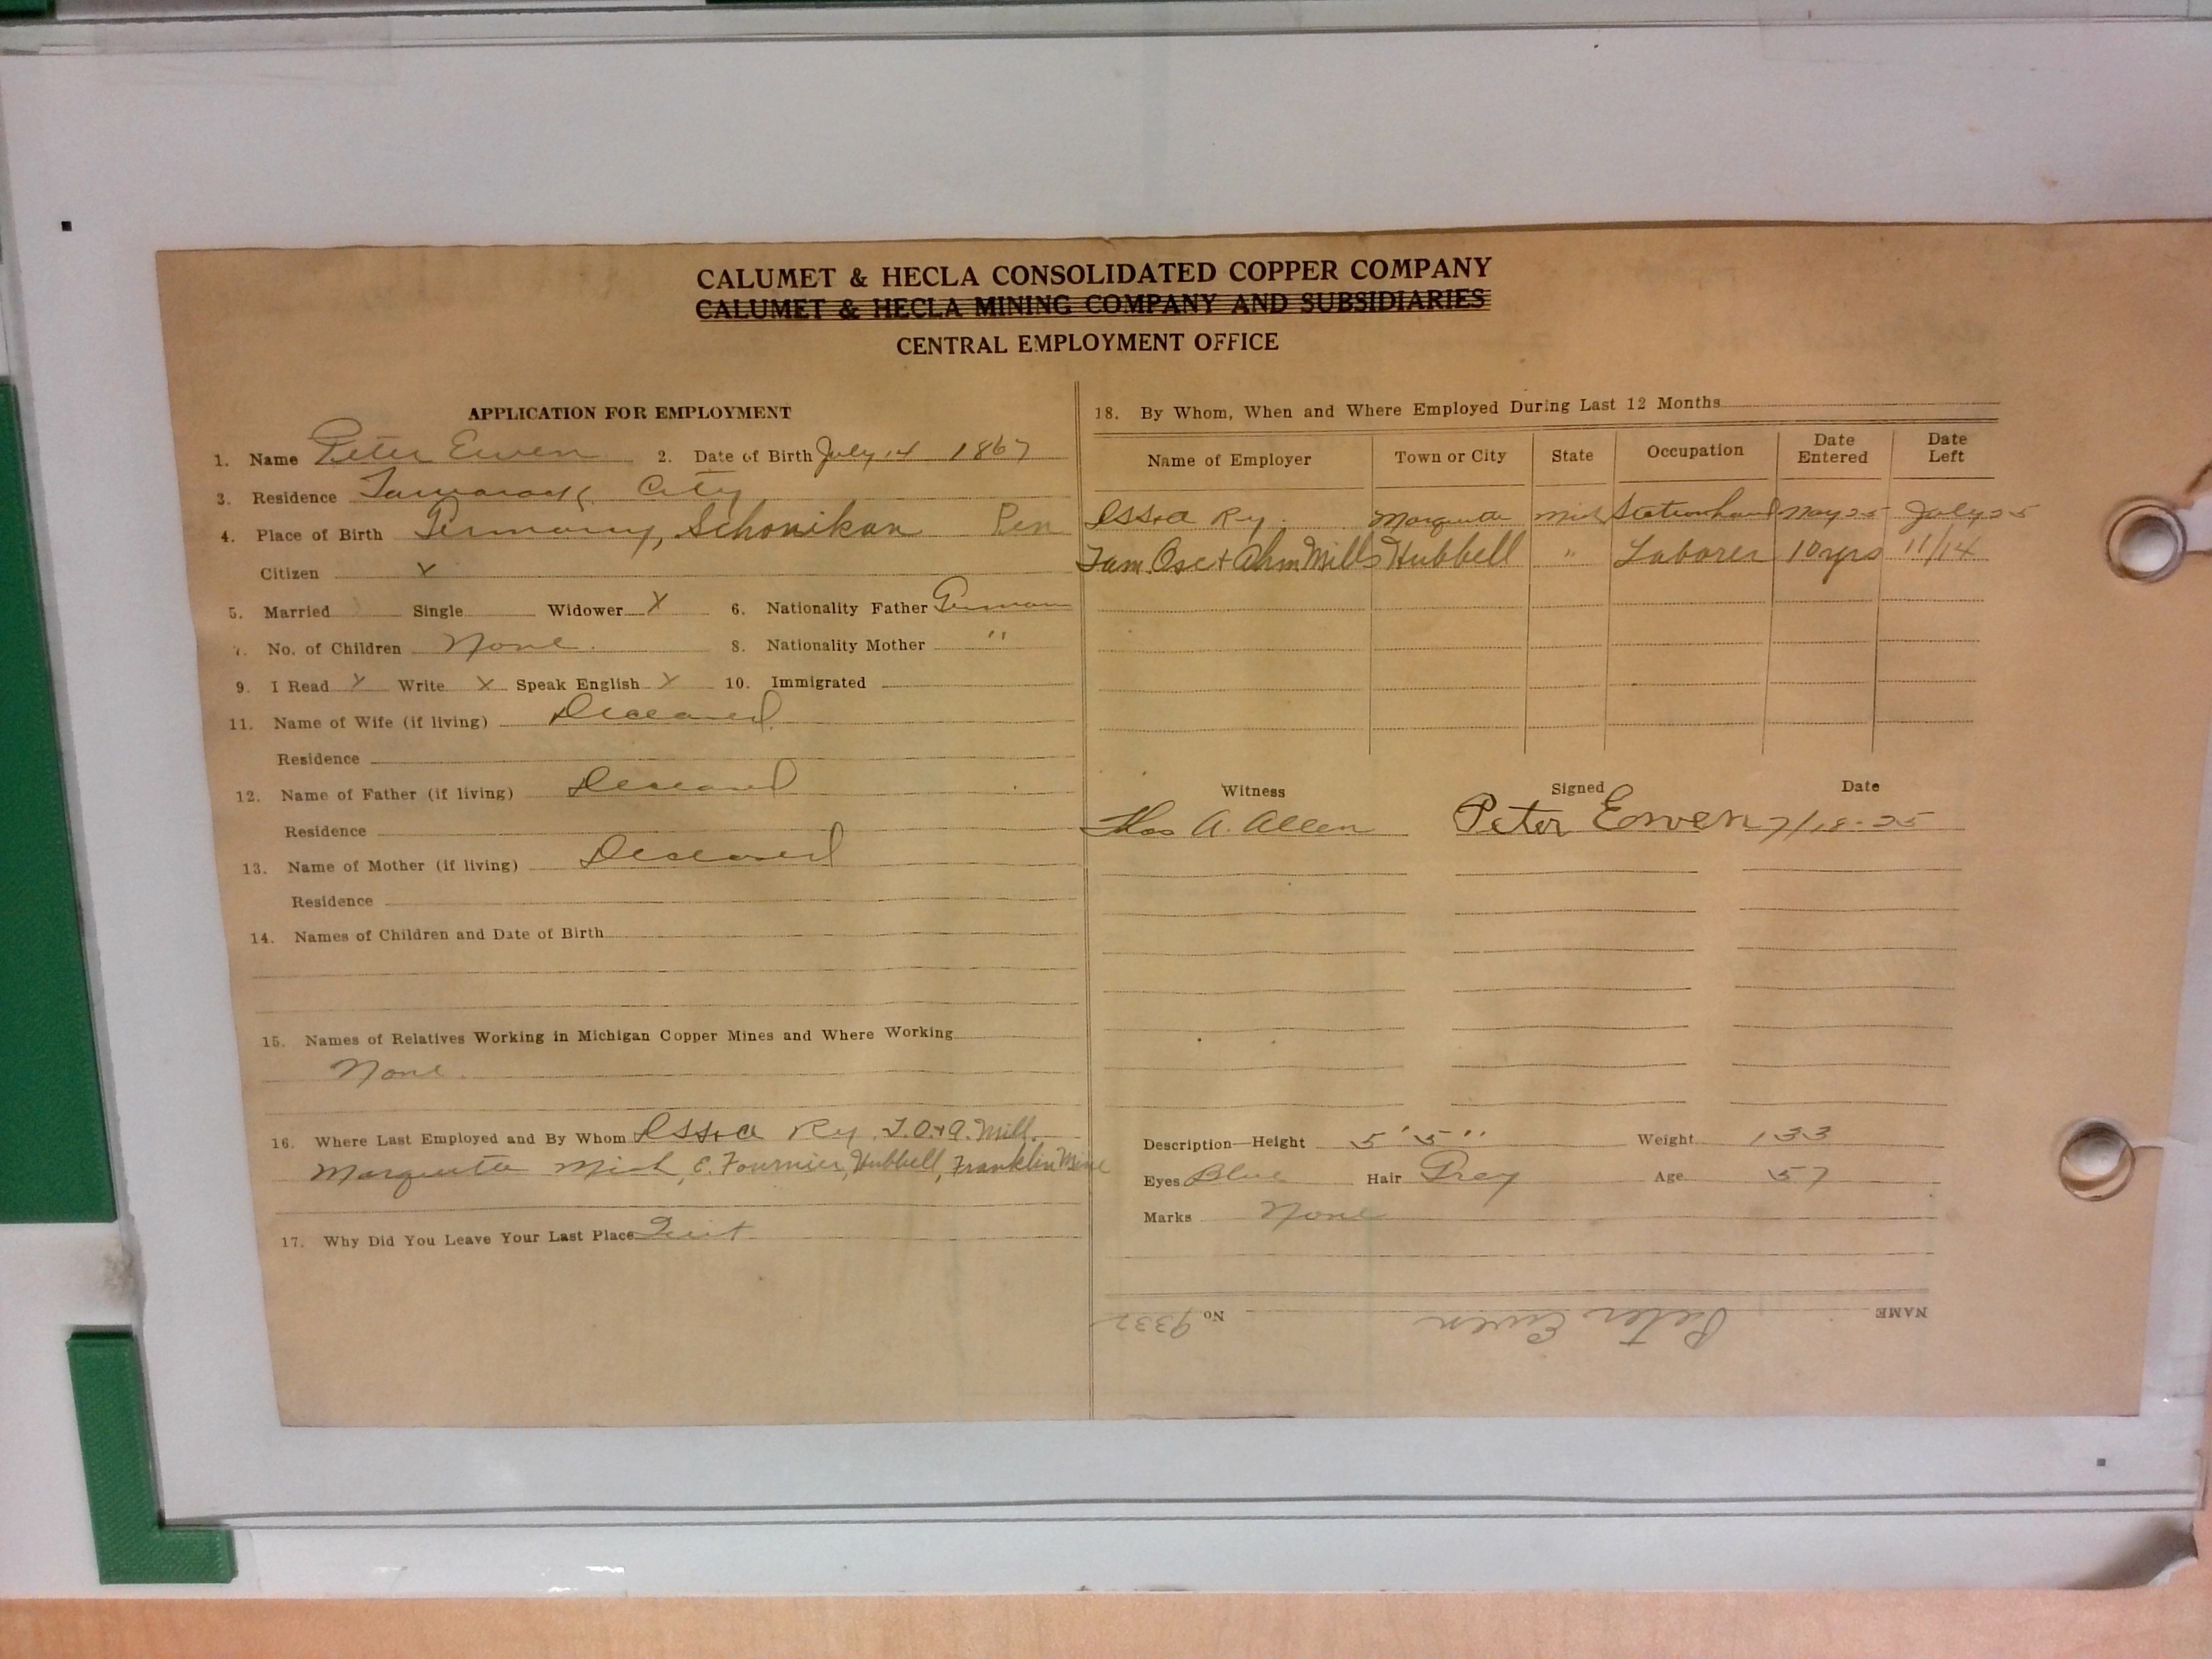 CALUMET & HECLA CONSOLIDATED COPPER COMPANY
CALUMET & HECLA MINING COMPANY AND SUBSIDIARIES
CENTRAL EMPLOYMENT OFFICE
APPLICATION FOR EMPLOYMENT
1. Name Peter Ewen 2. Date of Birth July 14 1867
3. Residence Tamarack City
4. Place of Birth Germany, Schonikan
Citizen x
5. Married Single Widower X 6. Nationality Father German
7. No. of Children None. 8. Nationality Mother "
9. I Read X Write X Speak English X 10. Immigrated
11. Name of Wife (if living) Deceased
Residence
12. Name of Father (if living) Deceased
Residence
13. Name of Mother (if living) Deceased
Residence
14. Names of Children and Date of Birth
15. Names of Relatives Working in Michigan Copper Mines and Where Working
None.
16. Where Last Employed and By Whom DSS&A Ry. T.O.&A. Mill.
Marquette Mich, E. Fournier, Hubbell, Franklin Mine
17. Why Did You Leave Your Last Place Quit
18. By Whom, When and Where Employed During Last 12 Months
Name of Employer Town or City State Occupation Date Entered Date Left
DSS&A Ry. Marquette Mich Sectionhand May 25 July 25
Tam. Osc & Ahm. Mills Hubbell " Laborer 10 yrs 11/14
Witness Signed Date
Thos A. Allen Peter Ewen 7/18-25
Description—Height 5' 5" Weight 133
Eyes Blue Hair Grey Age 57
Marks None
NAME Peter Ewen No 9332